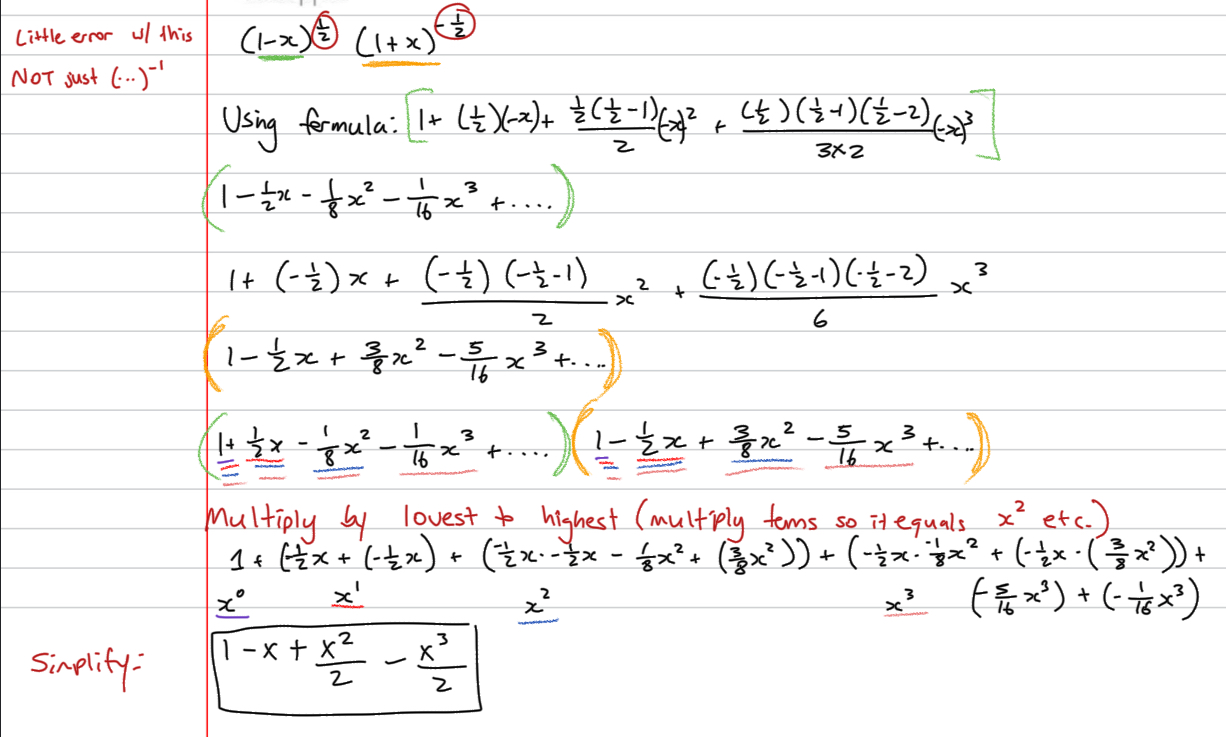 Little error w/ this
NOT just (...)⁻¹
(1-x)^(1/2) (1+x)^(-1/2)
Using formula: [1 + (1/2)(-x) + (1/2(1/2-1))/2 (-x)² + ((1/2)(1/2-1)(1/2-2))/(3×2) (-x)³]
(1 - 1/2x - 1/8x² - 1/16x³ + ....)
1 + (-1/2)x + ((-1/2)(-1/2-1))/2 x² + ((-1/2)(-1/2-1)(-1/2-2))/6 x³
(1 - 1/2x + 3/8x² - 5/16x³ + ....)
(1 + 1/2x - 1/8x² - 1/16x³ + ....)(1 - 1/2x + 3/8x² - 5/16x³ + ....)
Multiply by lowest to highest (multiply terms so it equals x² etc.)
1 + (-1/2x + (-1/2x) + (-1/2x · -1/2x - 1/8x² + (3/8x²)) + (-1/2x · -1/8x² + (-1/2x · (3/8x²)) +
x⁰ x¹ x² x³ (-5/16x³) + (-1/16x³)
Simplify:- 1 - x + x²/2 - x³/2